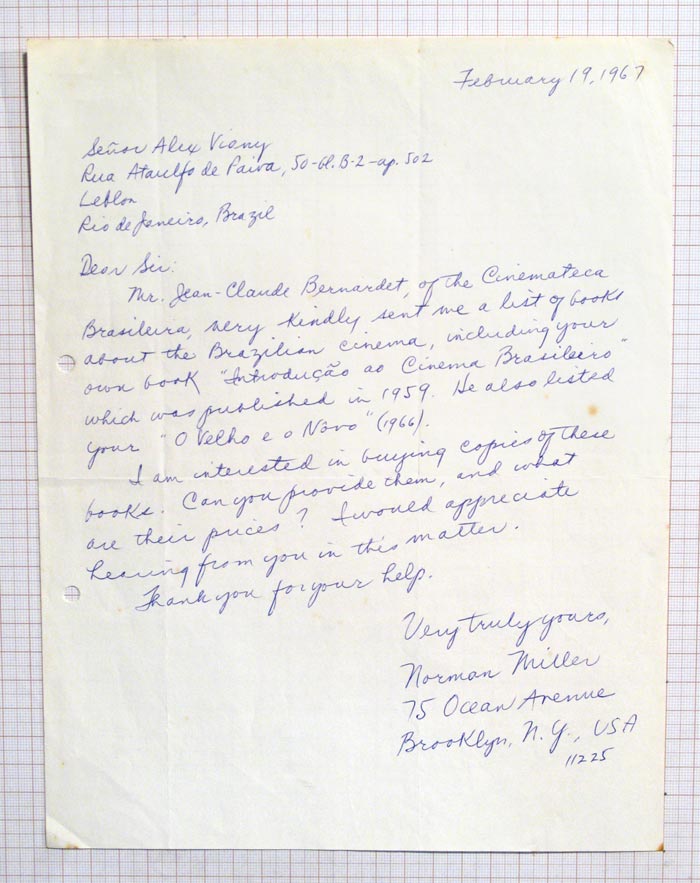 February 19, 1967
Señor Alex Viany
Rua Ataulfo de Paiva, 50-bl. B-2-ap. 502
Leblon
Rio de Janeiro, Brazil
Dear Sir:
Mr. Jean-Claude Bernardet, of the Cinemateca
Brasileira, very kindly sent me a list of books
about the Brazilian cinema, including your
own book "Introdução ao Cinema Brasileiro"
which was published in 1959. He also listed
your "O Velho e o Novo" (1966).
I am interested in buying copies of these
books. Can you provide them, and what
are their prices? I would appreciate
hearing from you in this matter.
Thank you for your help.
Very truly yours,
Norman Miller
75 Ocean Avenue
Brooklyn, N.Y., USA
11225